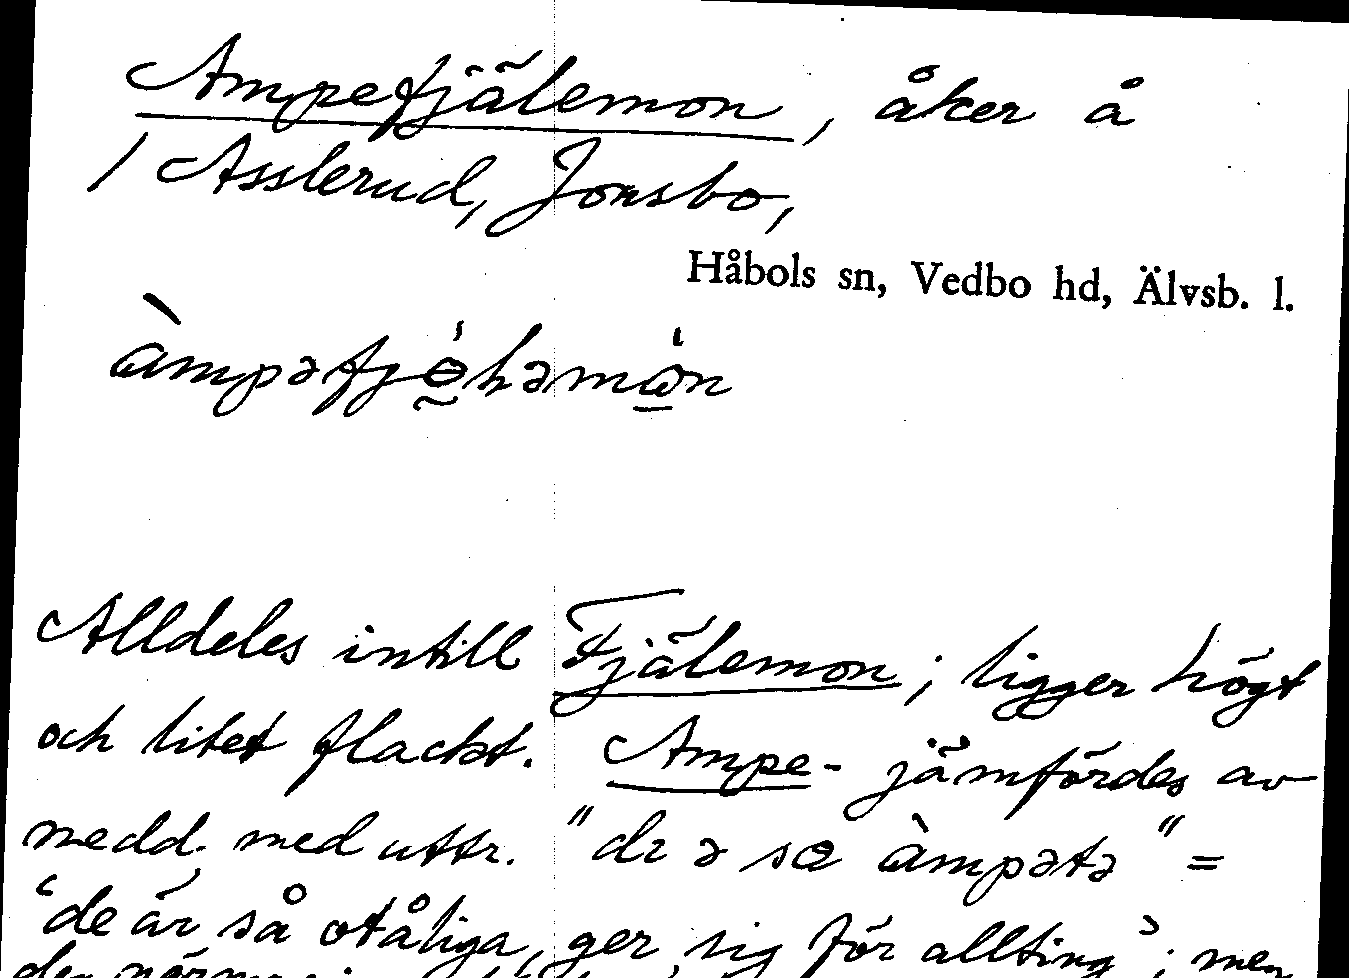 Ampefjälemon, åker å
/ Asslerud, Jonsbo,
Håbols sn, Vedbo hd, Älvsb. l.
Alldeles intill Fjälemon; ligger högt
och litet flackt. Ampe- jämfördes av
medd. med uttr. "dɛ ə sɵ àmpətə" =
'de är så otåliga, ger sig för allting'; men